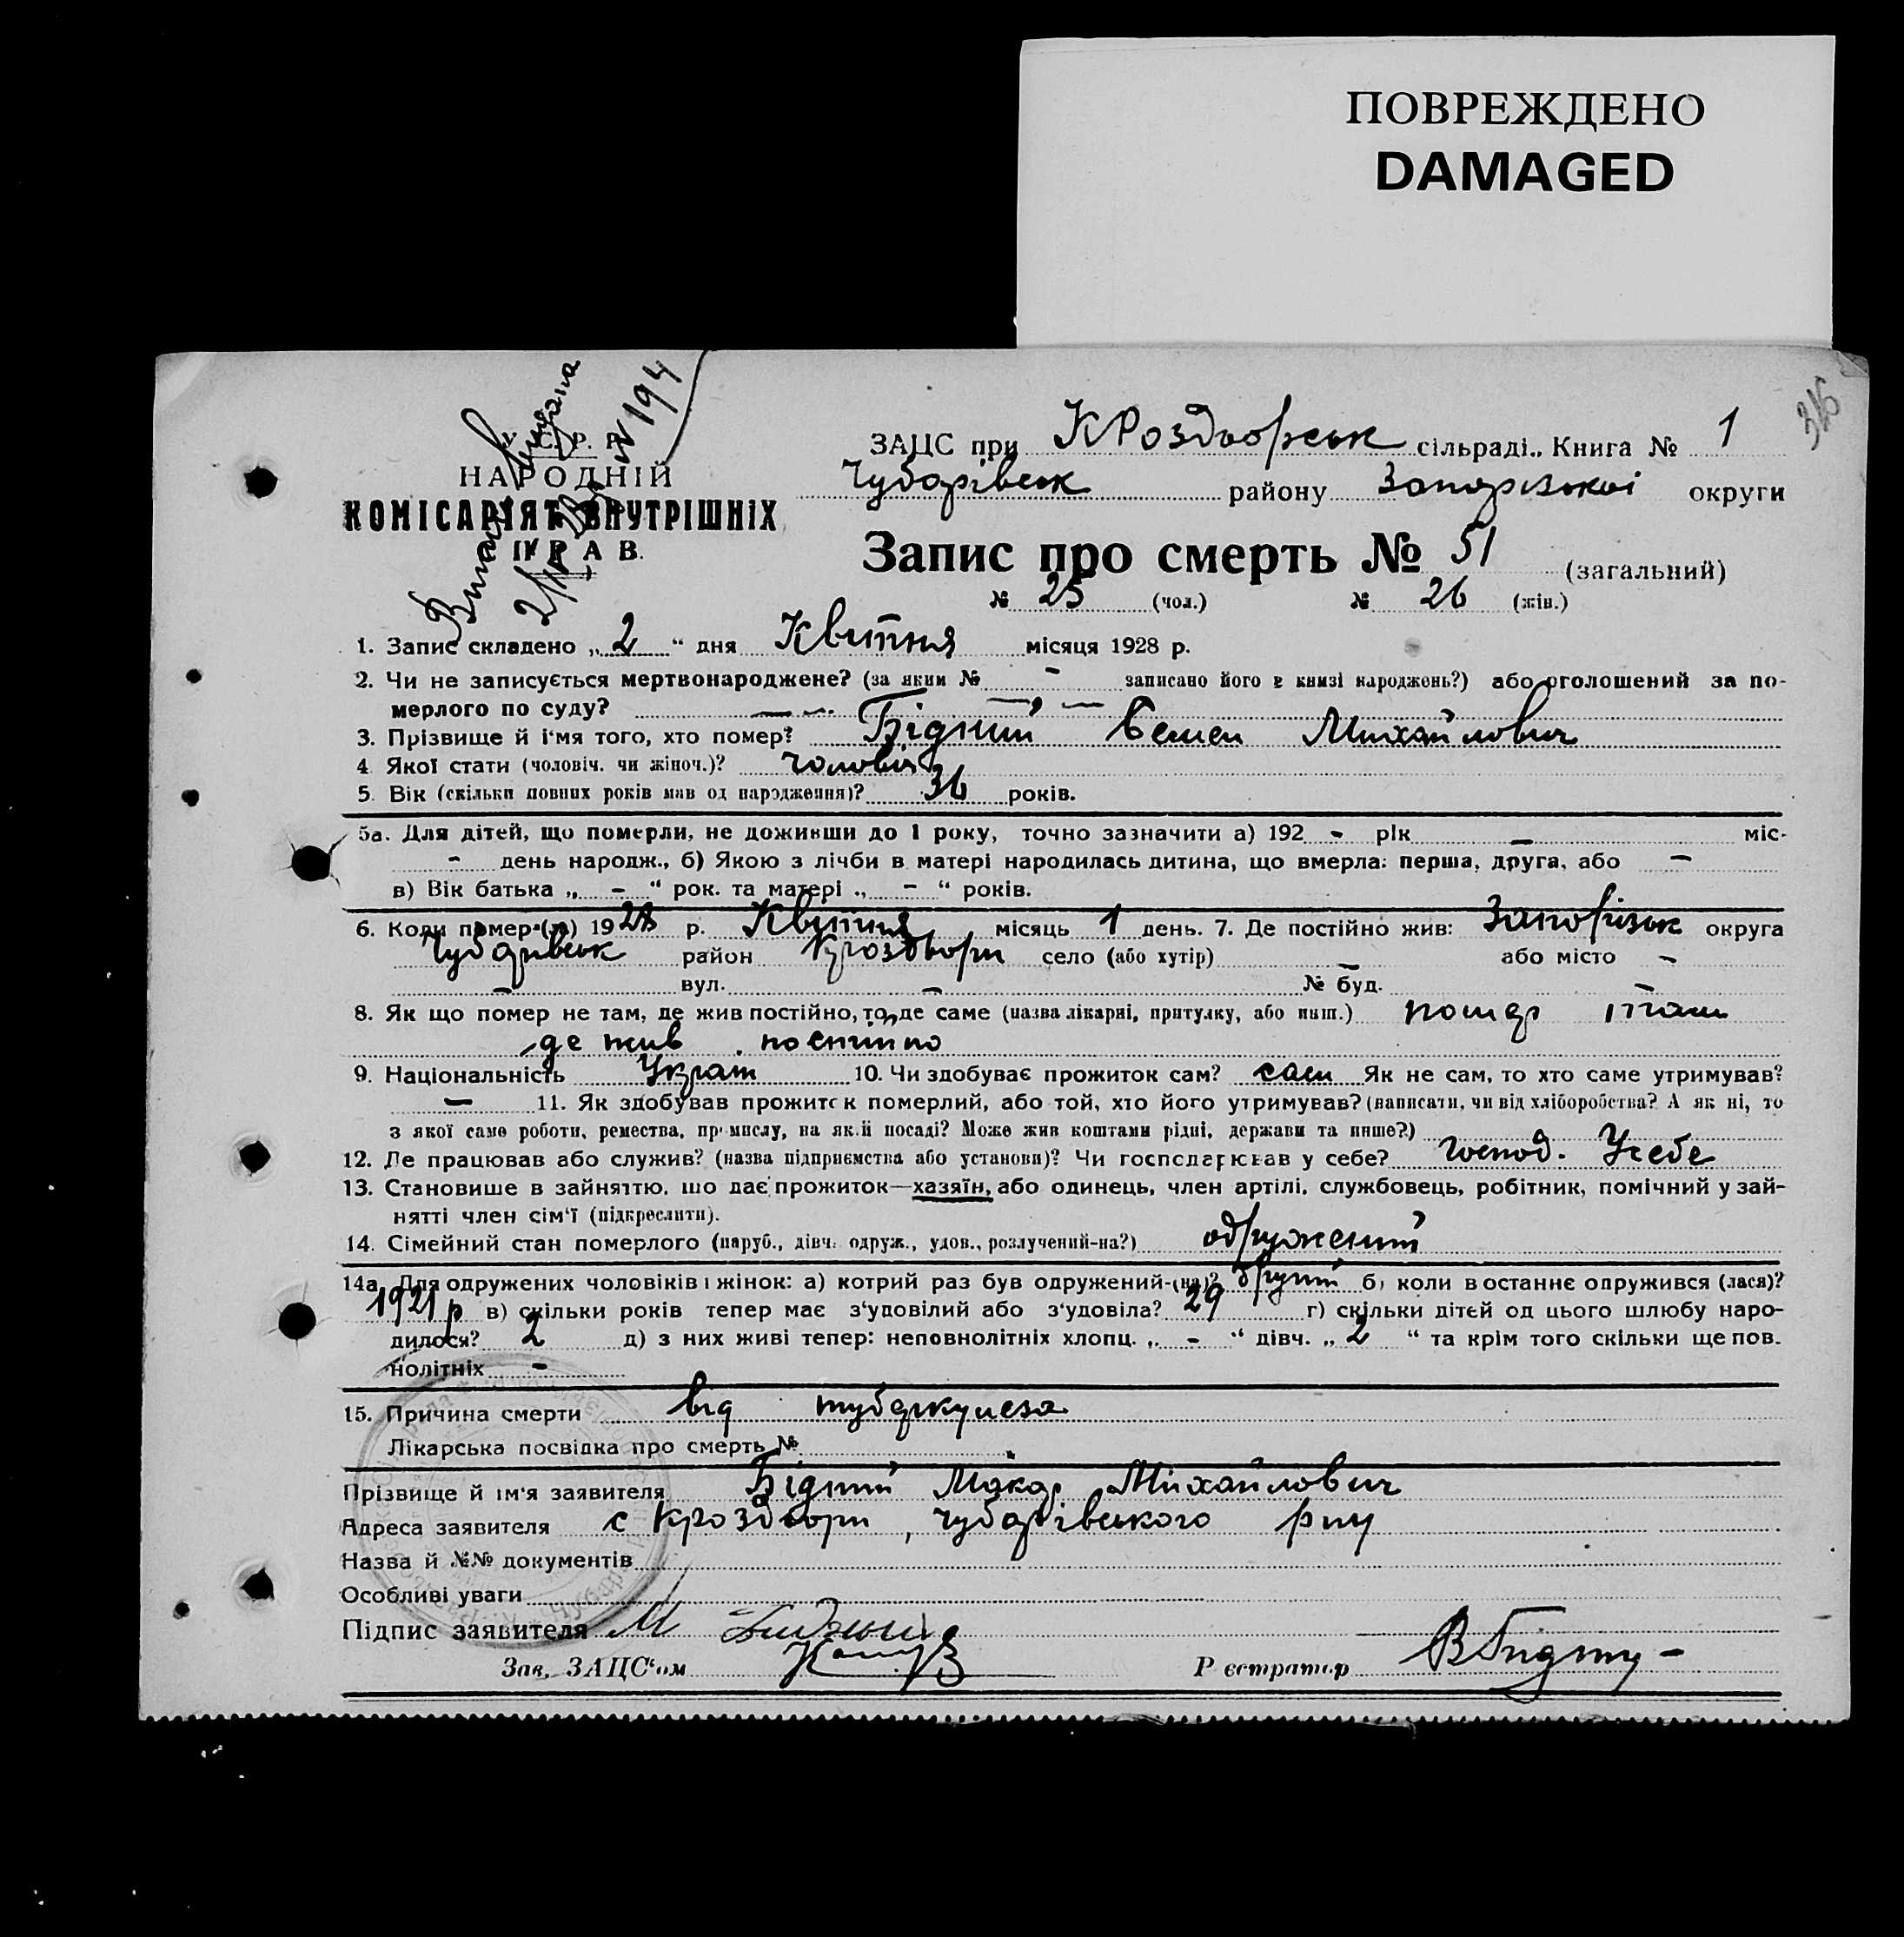 ПОВРЕЖДЕНО
DAMAGED
316
У. С. Р. Р.
НАРОДНІЙ
КОМІСАРІЯТ ВНУТРІШНІХ
СПРАВ.
видана
№ 194
ЗАЦС при КРоздорськ сільраді., Книга № 1
Чубарівськ району Запорізької округи
Запис про смерть № 51 (загальний)
№ 25 (чол.) № 26 (жін.)
1. Запис складено „ 2 “ дня Квітня місяця 1928 р.
2. Чи не записується мертвонароджене? (за яким № - записано його в книзі народжень?) або оголошений за по-
мерлого по суду? — — —
3. Прізвище й і'мя того, хто помер? Бідний Семен Михайлович
4 Якої стати (чоловіч. чи жіноч.)? чоловіч
5. Вік (скільки повних років мав од народження)? 36 років.
5а. Для дітей, що померли, не доживши до 1 року, точно зазначити а) 192 - рік — міс-
- день народж., б) Якою з лічби в матері народилась дитина, що вмерла: перша, друга, або —
в) Вік батька „ - “ рок. та матері „ - “ років.
6. Коли помер(ла) 1928 р. Квітня місяць 1 день. 7. Де постійно жив: Запорізьк округа
Чубарівськ район Кроздори село (або хутір) - або місто -
- вул. - № буд.
8. Як що помер не там, де жив постійно, то де саме (назва лікарні, притулку, або инш.) помер там
де жив постійно
9. Національність Украт 10. Чи здобуває прожиток сам? сам Як не сам, то хто саме утримував?
— 11. Як здобував прожиток померлий, або той, хто його утримував? (написати, чи від хліборобства? А як ні, то
з якої саме роботи, ремества, промислу, на якій посаді? Може жив коштами рідні, держави та инше?)
12. Де працював або служив? (назва підприємства або установи)? Чи господарював у себе? Господ. Усебе
13. Становище в зайнятто, що дає прожиток—хазяїн, або одинець, член артілі, службовець, робітник, помічний у зай-
нятті член сім'ї (підкреслити).
14. Сімейний стан померлого (паруб., дівч. одруж., удов., розлучений-на?) одружений
14а Для одружених чоловіків і жінок: а) котрий раз був одружений-(на)? другий б) коли востаннє одружився (лася)?
1921 р в) скільки років тепер має з'удовілий або з'удовіла? 29 г) скільки дітей од цього шлюбу наро-
дилося? 2 д) з них живі тепер: неповнолітніх хлопц. „ - “ дівч. „ 2 “ та крім того скільки ще пов.
нолітніх -
15. Причина смерти від туберкульоза
Лікарська посвідка про смерть №
Прізвище й ім'я заявителя Бідний Макар Михайлович
Адреса заявителя с Кроздори, Чубарівського р-ну
Назва й №№ документів
Особливі уваги
Підпис заявителя М Бидный
Зав. ЗАЦС'ом
Реєстратор